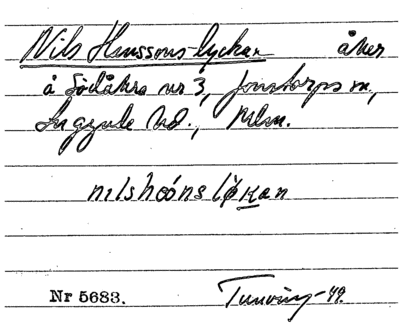 Nils Hanssons-lyckan åker
å Södåkra nr 3, Jonstorps sn,
Luggude hd., Mlm.
nilshoóns lykan
Nr 5683. Tuneving -49.